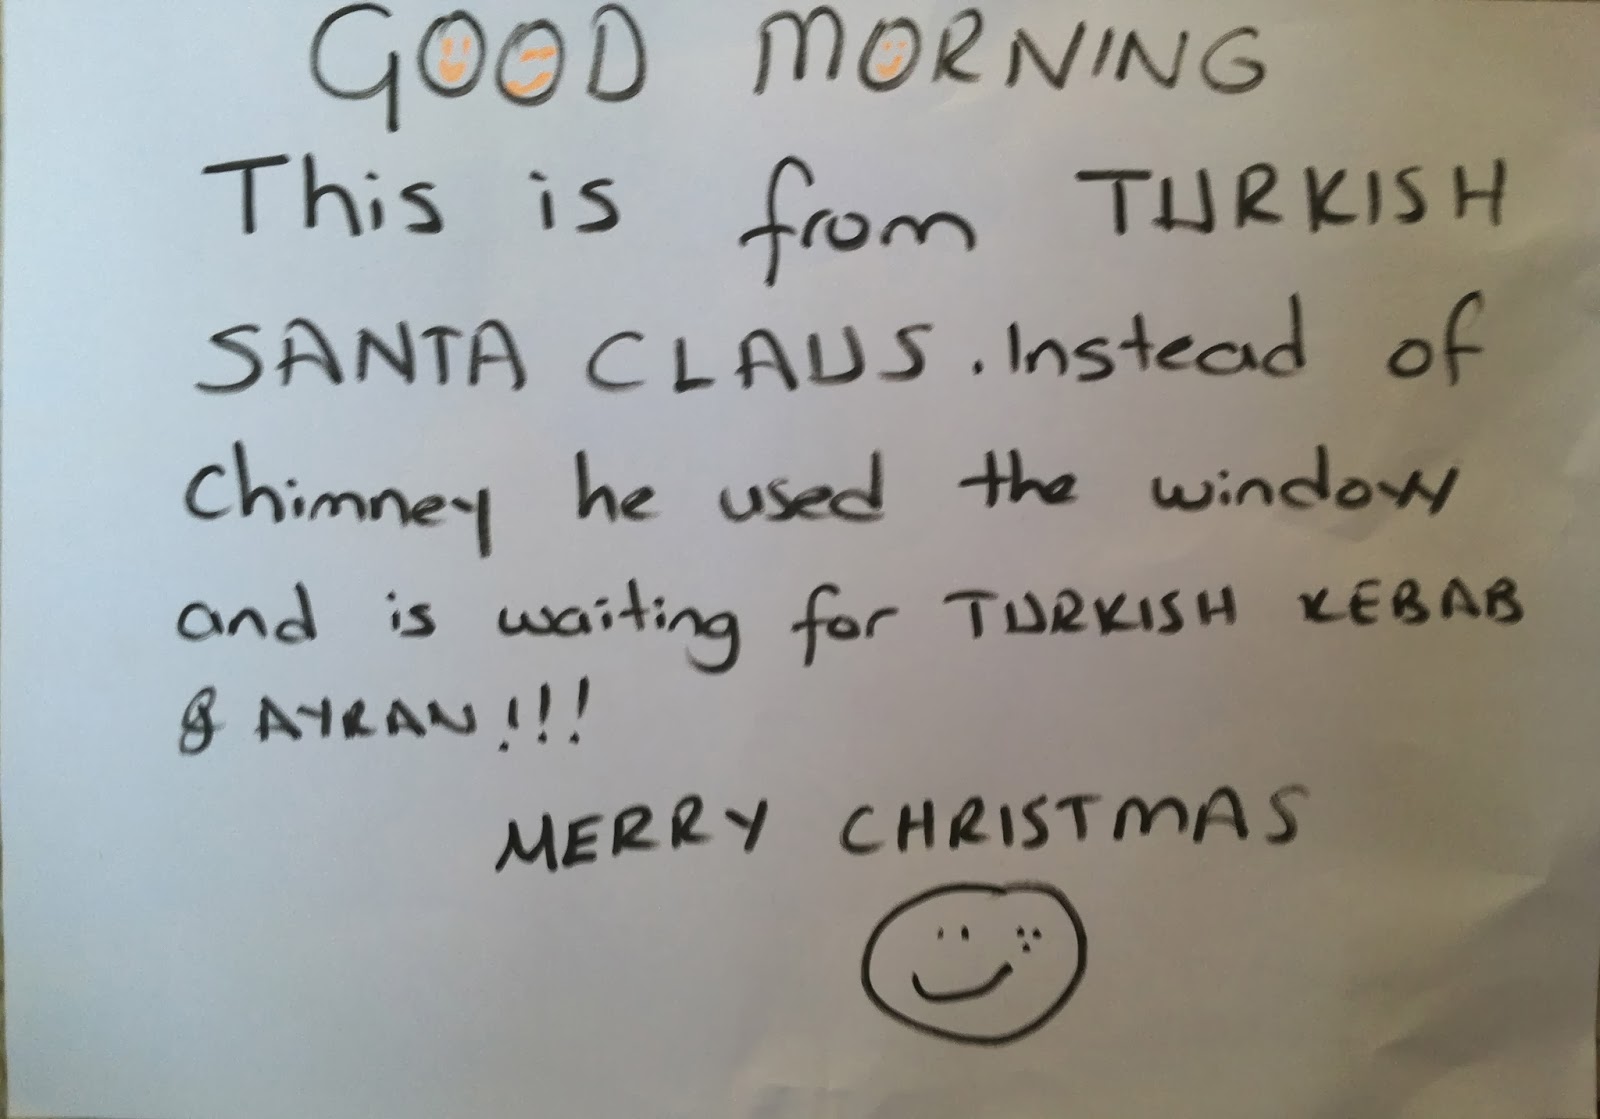 GOOD MORNING
This is from TURKISH
SANTA CLAUS. Instead of
Chimney he used the window
and is waiting for TURKISH KEBAB
& AYRAN!!!
MERRY CHRISTMAS